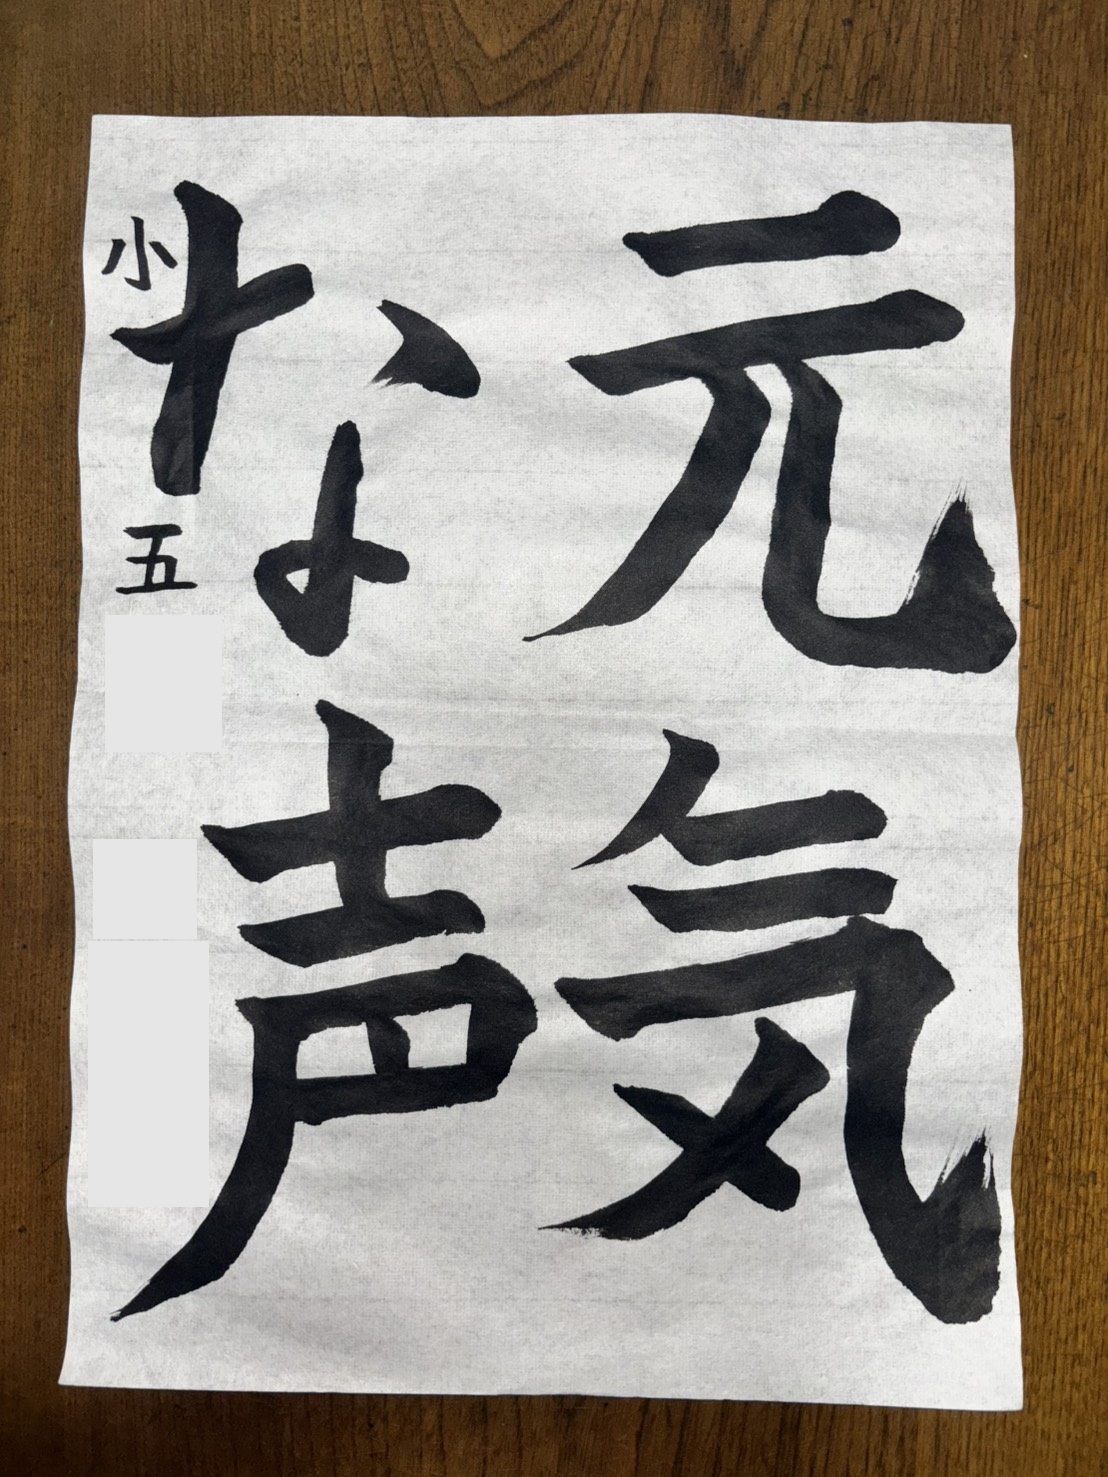 元気
な声
小五